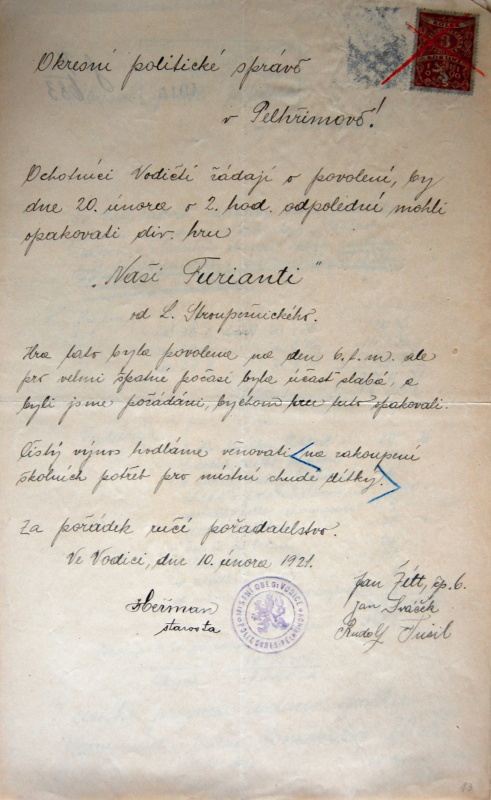 Okresní politické správě
v Pelhřimově!
Ochotníci Vodičtí žádají o povolení, by
dne 20. února o 2. hod. odpolední mohli
opakovati div. hru
„Naši Furianti"
od L. Stroupežnického.
Hra tato byla povolena na den 6. t. m. ale
pro velmi špatné počasí byla účast slabá, a
byli jsme požádáni, bychom hru tuto opakovali.
Čistý výnos hodláme věnovati na zakoupení
školních potřeb pro místní chudé dítky.
Za pořádek ručí pořadatelstvo.
Ve Vodici, dne 10. února 1921.
Jan Žétt, čp. 6.
Heřman
starosta
Jan Sváček
Rudolf Tušil